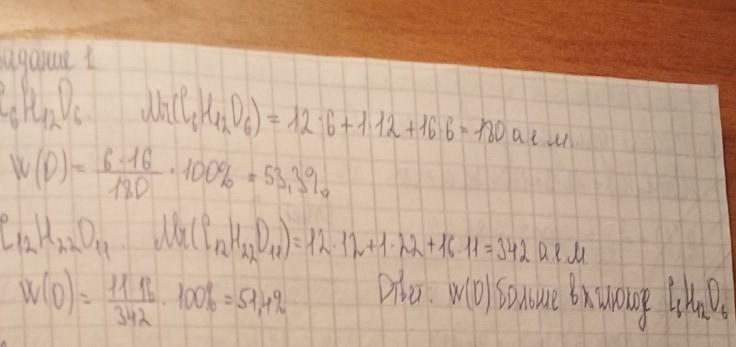 задание 1
C₆H₁₂O₆. Mr(C₆H₁₂O₆) = 12·6+1·12+16·6 = 180 а.е.м.
W(O) = 6·16/180 · 100% = 53,3%
C₁₂H₂₂O₁₁. Mr(C₁₂H₂₂O₁₁) = 12·12+1·22+16·11 = 342 а.е.м
W(O) = 11·16/342 · 100% = 51,4% Ответ: W(O) больше в C₆H₁₂O₆